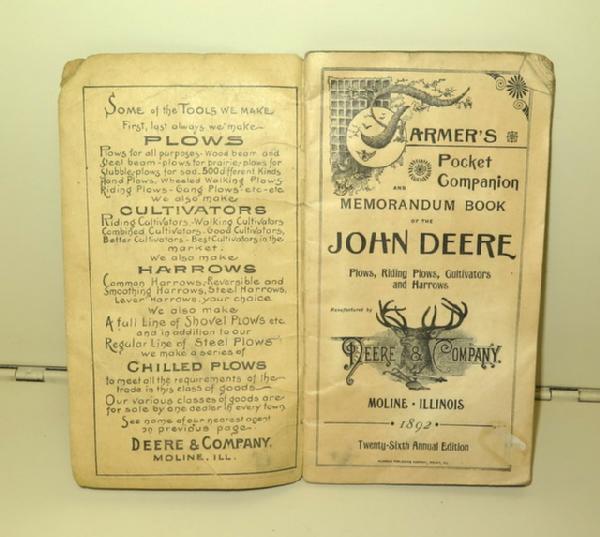 SOME of the TOOLS WE MAKE
First, last always we make
PLOWS
Plows for all purposes-wood beam and
steel beam-plows for prairie; plows for
stubble; plows for sod. 500 different Kinds
Hand Plows, Wheeled Walking Plows,
Riding Plows-Gang Plows, etc-etc
We also make
CULTIVATORS
Riding Cultivators-Walking Cultivators
Combined Cultivators. Good Cultivators,
Better Cultivators-Best Cultivators in the
market.
We also make
HARROWS
Common Harrows, Reversible and
Smoothing Harrows, Steel Harrows,
Lever Harrows, your choice
We also make
A full Line of Shovel Plows etc.
and in addition to our
Regular Line of Steel Plows
we make a series of
CHILLED PLOWS
to meet all the requirements of the
trade in this class of goods
Our various classes of goods are
for sale by one dealer in every town.
See name of our nearest agent
on previous page.
DEERE & COMPANY.
MOLINE, ILL.
FARMER'S
Pocket
Companion
AND
MEMORANDUM BOOK
OF THE
JOHN DEERE
Plows, Riding Plows, Cultivators
and Harrows
Manufactured by
DEERE & COMPANY.
MOLINE · ILLINOIS
1892
Twenty-Sixth Annual Edition